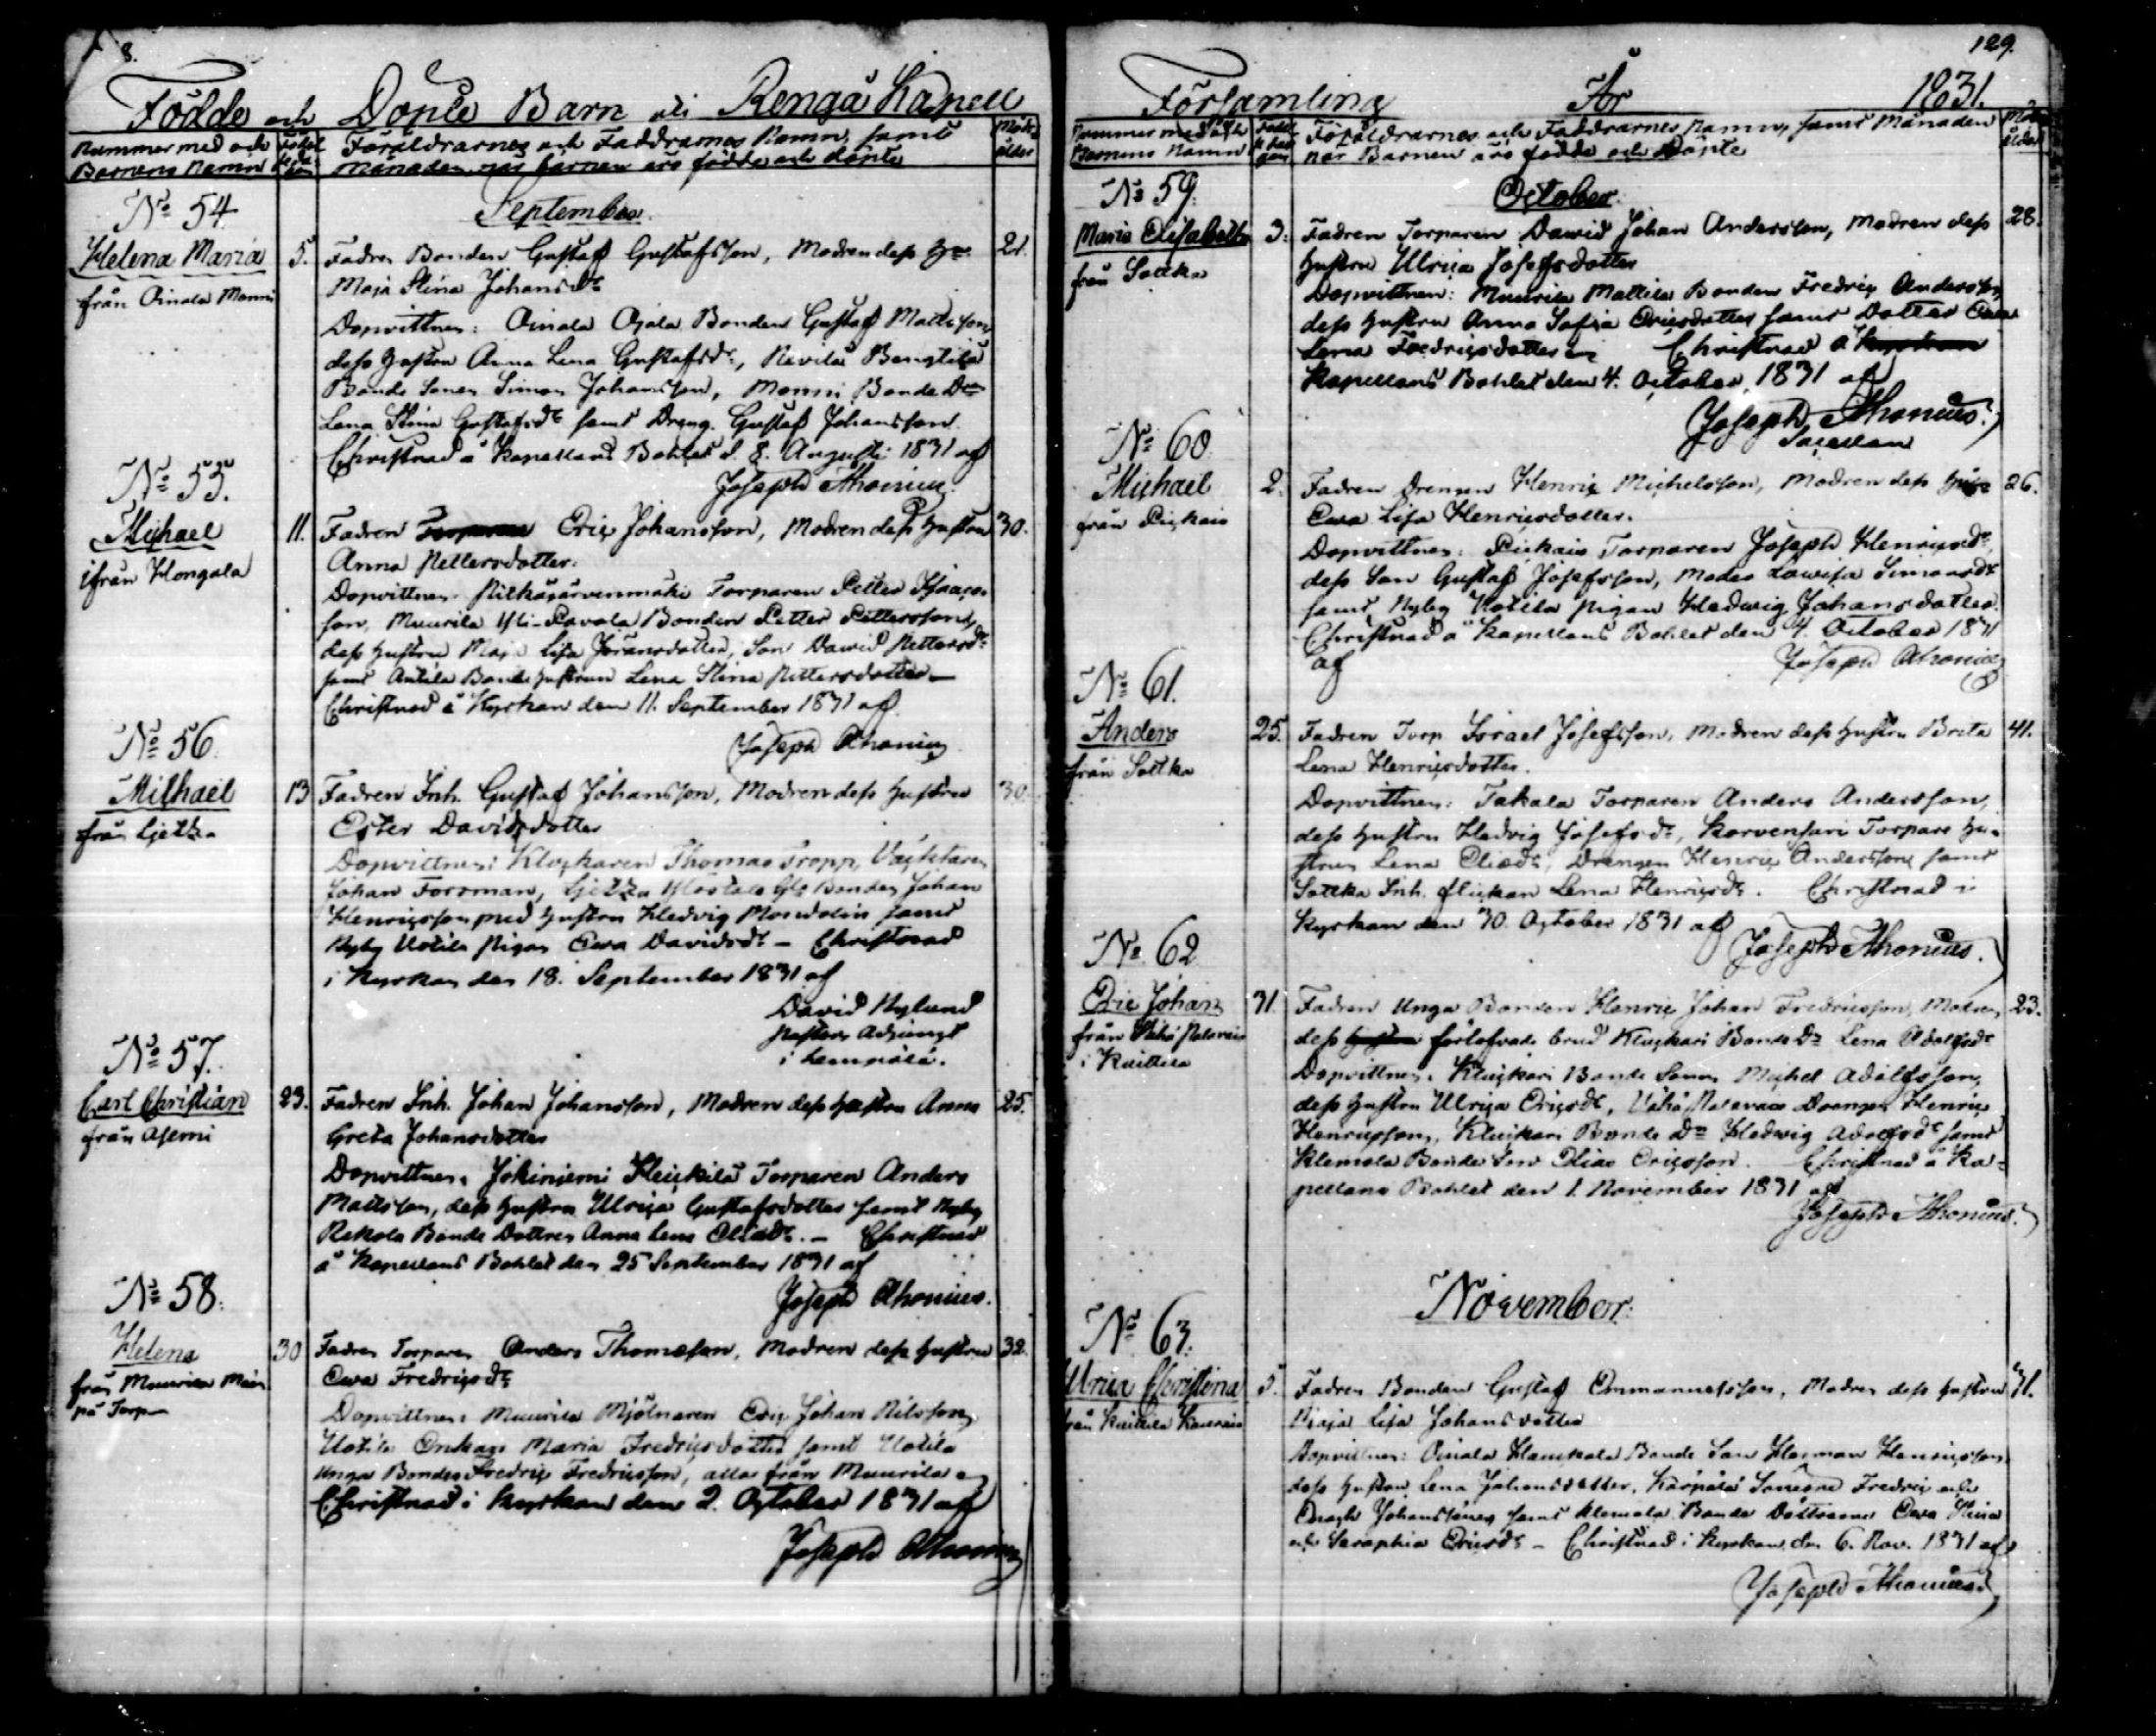 8.
Födde och Döpte Barn uti Rengå Kapell
Nummer med och Barnens Namn
Föräldrarnes och Faddrarnes Namn, samt
månaden när barnen äro födde och döpte
September.
No 54.
Helena Maria
från Oinala Monni
5.
Fadren Bonden Gustaf Gustafsson, Modren dess
21.
Maja Stina Johansdr
Dopvittnen: Oinala Ojala Bonden Gustaf Mattsson,
dess hustru Anna Lena Gustafsdr,
Bonde Sonen Simon Johansson, Monni Bonde Dn
Lena Stina Gustafsdr samt Dreng. Gustaf Johansson.
Christnad å Kapellans Bohlet d. 8. Augusti 1831 af
Joseph Ahonius.
No 55.
Michael
ifrån Hongola
11.
Fadren Eric Johansson, Modren dess hustru
30.
Anna Pettersdotter.
Dopvittnen: Torparen Petter Isaacs-
son, Muurila Yli-Pavola Bonden Petter Pettersson,
dess hustru Maja Lisa Göransdotter, Son David
samt Antila Bonde hustrun Lena Stina Pettersdotter
Christnad i Kyrkan den 11. September 1831 af
Joseph Ahonius
No 56.
Michael
från Ljetzka
13
Fadren Inh. Gustaf Johansson, Modren dess hustru
30.
Ester Davidsdotter
Dopvittnen: Klockaren Thomas Tropp,
Johan Forsman, Bonden Johan
Henricsson med hustru Hedvig samt
Nyby Uotila Pigan Ewa Davidsdr - Christnad
i Kyrkan den 18. September 1831 af
David Nylund
Pastors Adjunct
i Lempälä.
No 57.
Carl Christian
från Asemi
23.
Fadren Inh. Johan Johansson, Modren dess hustru Anna
25.
Greta Johansdotter
Dopvittnen: Jokiniemi Heickilä Torparen Anders
Mattsson, dess hustru Ulrica Gustafsdotter samt Nyby
Rekola Bonde Dottren Anna Lena Eliædr. - Christnad
å Kapellans Bohlet den 25 September 1831 af
Joseph Ahonius.
No 58.
Helena
från Muurila
på Torp
30
Fadren Torparen Anders Thomasson, Modren dess hustru
32.
Ewa Fredricsdr
Dopvittnen: Muurila Mjölnaren Eric Johan Nilsson,
Uotila Enkan Maria Fredricsdotter samt Uotila
unga Bonden Fredric Fredricsson, alla från Muurila
Christnad i Kyrkan den 2. October 1831 af
Joseph Ahonius
129.
Församling År 1831.
Nummer med och
Barnens Namn
Föräldrarnes och Faddrarnes Namn, samt Månaden
när Barnen äro födde och Döpte
October.
No 59.
Maria Elisabeth
från Sotka
3.
Fadren Torparen Dawid Johan Andersson, Modren dess
28.
hustru Ulrica Josefsdotter
Dopvittnen: Muurila Mattila Bonden Fredric Andersson,
dess hustru Anna Sofia Ericsdotter samt Dotter Ewa
Lena Fredricsdotter Christnad å
Kapellans Bohlet den 4. October 1831 af
Joseph Ahonius.
Sacellan
No 60.
Michael
från Pickais
2.
Fadren Drengen Henric Michelsson, Modren dess
26.
Ewa Lisa Henricsdotter.
Dopvittnen: Pickais Torparen Joseph
dess Son Gustaf Josefsson, Moder Lowisa Simonsdr
samt Nyby Uotila Pigan Hedwig Johansdotter.
Christnad å Kapellans Bohlet den 4. October 1831
af
Joseph Ahonius
No 61.
Anders
från Sotka
25.
Fadren Torp Israel Josefsson, Modren dess hustru Brita
41.
Lena Henricsdotter.
Dopvittnen: Takala Torparen Anders Andersson,
dess hustru Hedvig Josefsdr, Korvensari Torpare hu-
strun Lena Eliædr, Drengen Henric Andersson samt
Sotka Inh. flickan Lena Henricsdr. Christnad i
Kyrkan den 30. October 1831 af
Joseph Ahonius.
No 62
Eric Johan
i Kuittila
31.
Fadren Unga Bonden Henric Johan Fredricsson, Modren
23.
dess hustru förlofvade brud Kluckari Bonde Dn Lena Adolfsdr
Dopvittnen: Kluckari Bonde Sonen Michel Adolfsson,
dess hustru Ulrica Ericsdr, Drengen Henric
Henricsson, Kluckari Bonde Dn Hedwig Adolfsdr samt
Klemola Bonde Son Elias Ericsson. Christnad å Ka-
pellans Bohlet den 1. November 1831 af
Joseph Ahonius.
November.
No 63.
Ulrica Christina
från Kuittila
5.
Fadren Bonden Gustaf Emmanuelsson, Modren dess hustru
31.
Maja Lisa Johansdotter
Dopvittnen: Oinala Bonde Son Herman Henricsson,
dess hustru Lena Johansdotter, Kärpälä Sönerne Fredric och
Johanssöner samt Klemola Bonde Döttrarne Ewa Stina
och Seraphia Ericsdr - Christnad i Kyrkan den 6. Nov. 1831 af
Joseph Ahonius